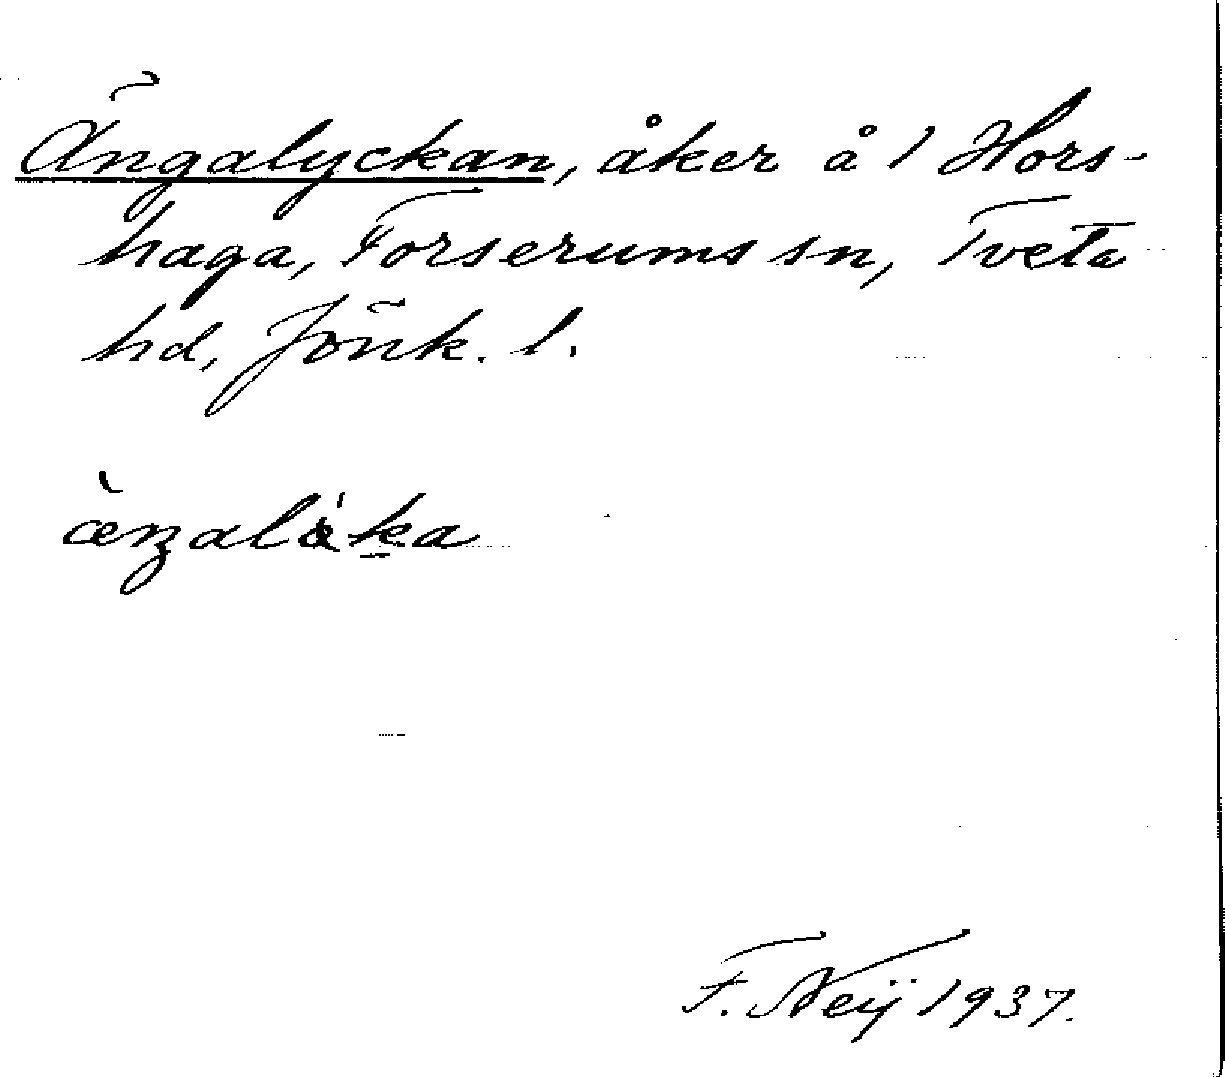 Ängalyckan, åker å 1 Hors-
haga, Forserums sn, Tveta
hd, Jönk. l.
F. Neij 1937.